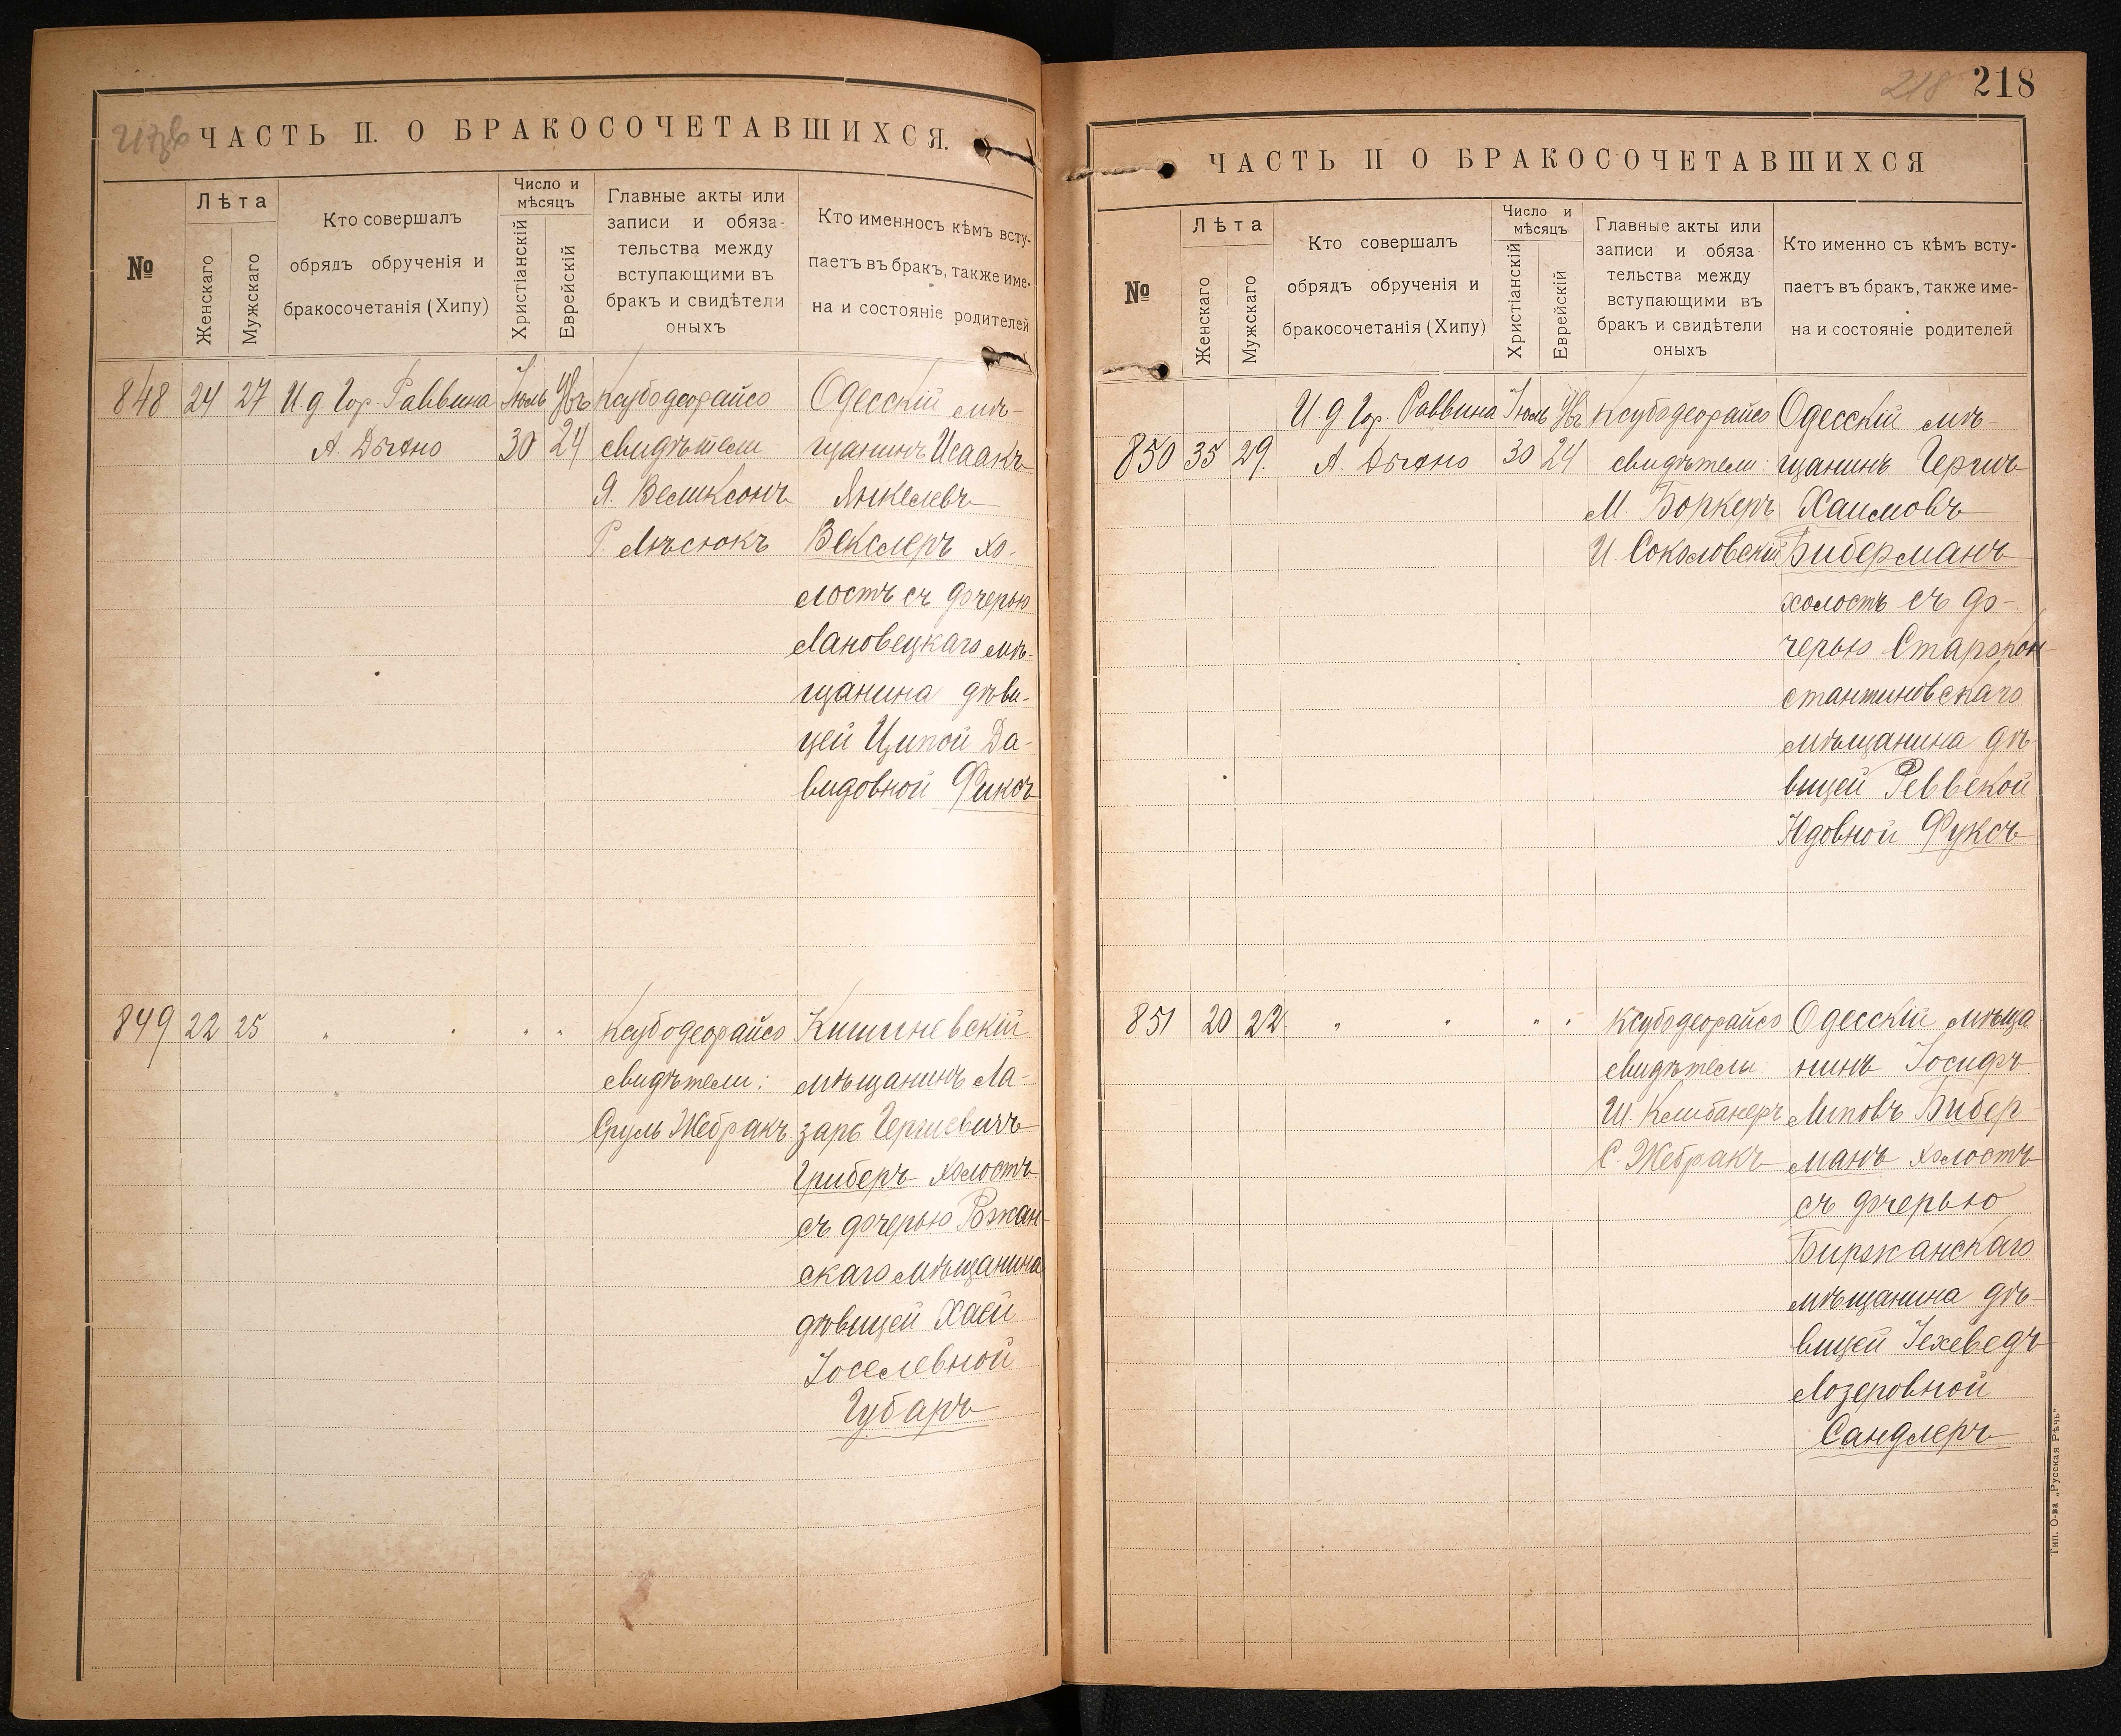 ЧАСТЬ II. О БРАКОСОЧЕТАВШИХСЯ.
№
Лѣта
Женскаго
Мужскаго
Кто совершалъ
обрядъ обрученія и
бракосочетанія (Хипу)
Число и
мѣсяцъ
Христіанскій
Еврейскій
Главные акты или
записи и обяза-
тельства между
вступающими въ
бракъ и свидѣтели
оныхъ
Кто именно съ кѣмъ всту-
паетъ въ бракъ, также име-
на и состояніе родителей
848 24 27
И. д. Гор. Раввина
Іюль
30 24
Ксубодеорайсо
свидѣтели
Я. Великсонъ
Р. Лѣсюкъ
Одесскій мѣ-
щанинъ Исаакъ
Янкелевъ
Векслеръ хо-
лостъ съ дочерью
Лановецкаго мѣ-
щанина дѣви-
цей Ципой Да-
видовной Фиксъ
849 22 25 " " " "
Ксубодеорайсо
свидѣтели:
Сруль Жебракъ
Кишиневскій
мѣщанинъ Ла-
зарь Гершевичъ
Гриберъ холостъ
съ дочерью Рожан-
скаго мѣщанина
дѣвицей Хаей
Іоселевной
Губаръ
218 218
ЧАСТЬ II О БРАКОСОЧЕТАВШИХСЯ
№
Лѣта
Женскаго
Мужскаго
Кто совершалъ
обрядъ обрученія и
бракосочетанія (Хипу)
Число и
мѣсяцъ
Христіанскій
Еврейскій
Главные акты или
записи и обяза
тельства между
вступающими въ
бракъ и свидѣтели
оныхъ
Кто именно съ кѣмъ всту-
паетъ въ бракъ, также име-
на и состояніе родителей
850 35 29.
И. д. Гор. Раввина
Іюль
30 24
Ксубодеорайсо
свидѣтели:
М. Боркеръ
И. Соколовскій
Одесскій мѣ-
щанинъ Гершъ
Хаимовъ
Биберманъ
холостъ съ до-
черью Старокон-
стантиновскаго
мѣщанина дѣ-
вицей Реввекой
Юдовной Фуксъ
851 20 22. " " " "
Ксубодеорайсо
свидѣтели:
Ш. Клибанеръ
С. Жебракъ
Одесскій мѣща
нинъ Іосифъ
Липовъ Бибер-
манъ холостъ
съ дочерью
Биржанскаго
мѣщанина дѣ-
вицей Іехеведъ
Лозеровной
Сандлеръ
Тип. О-ва „Русская Рѣчь"